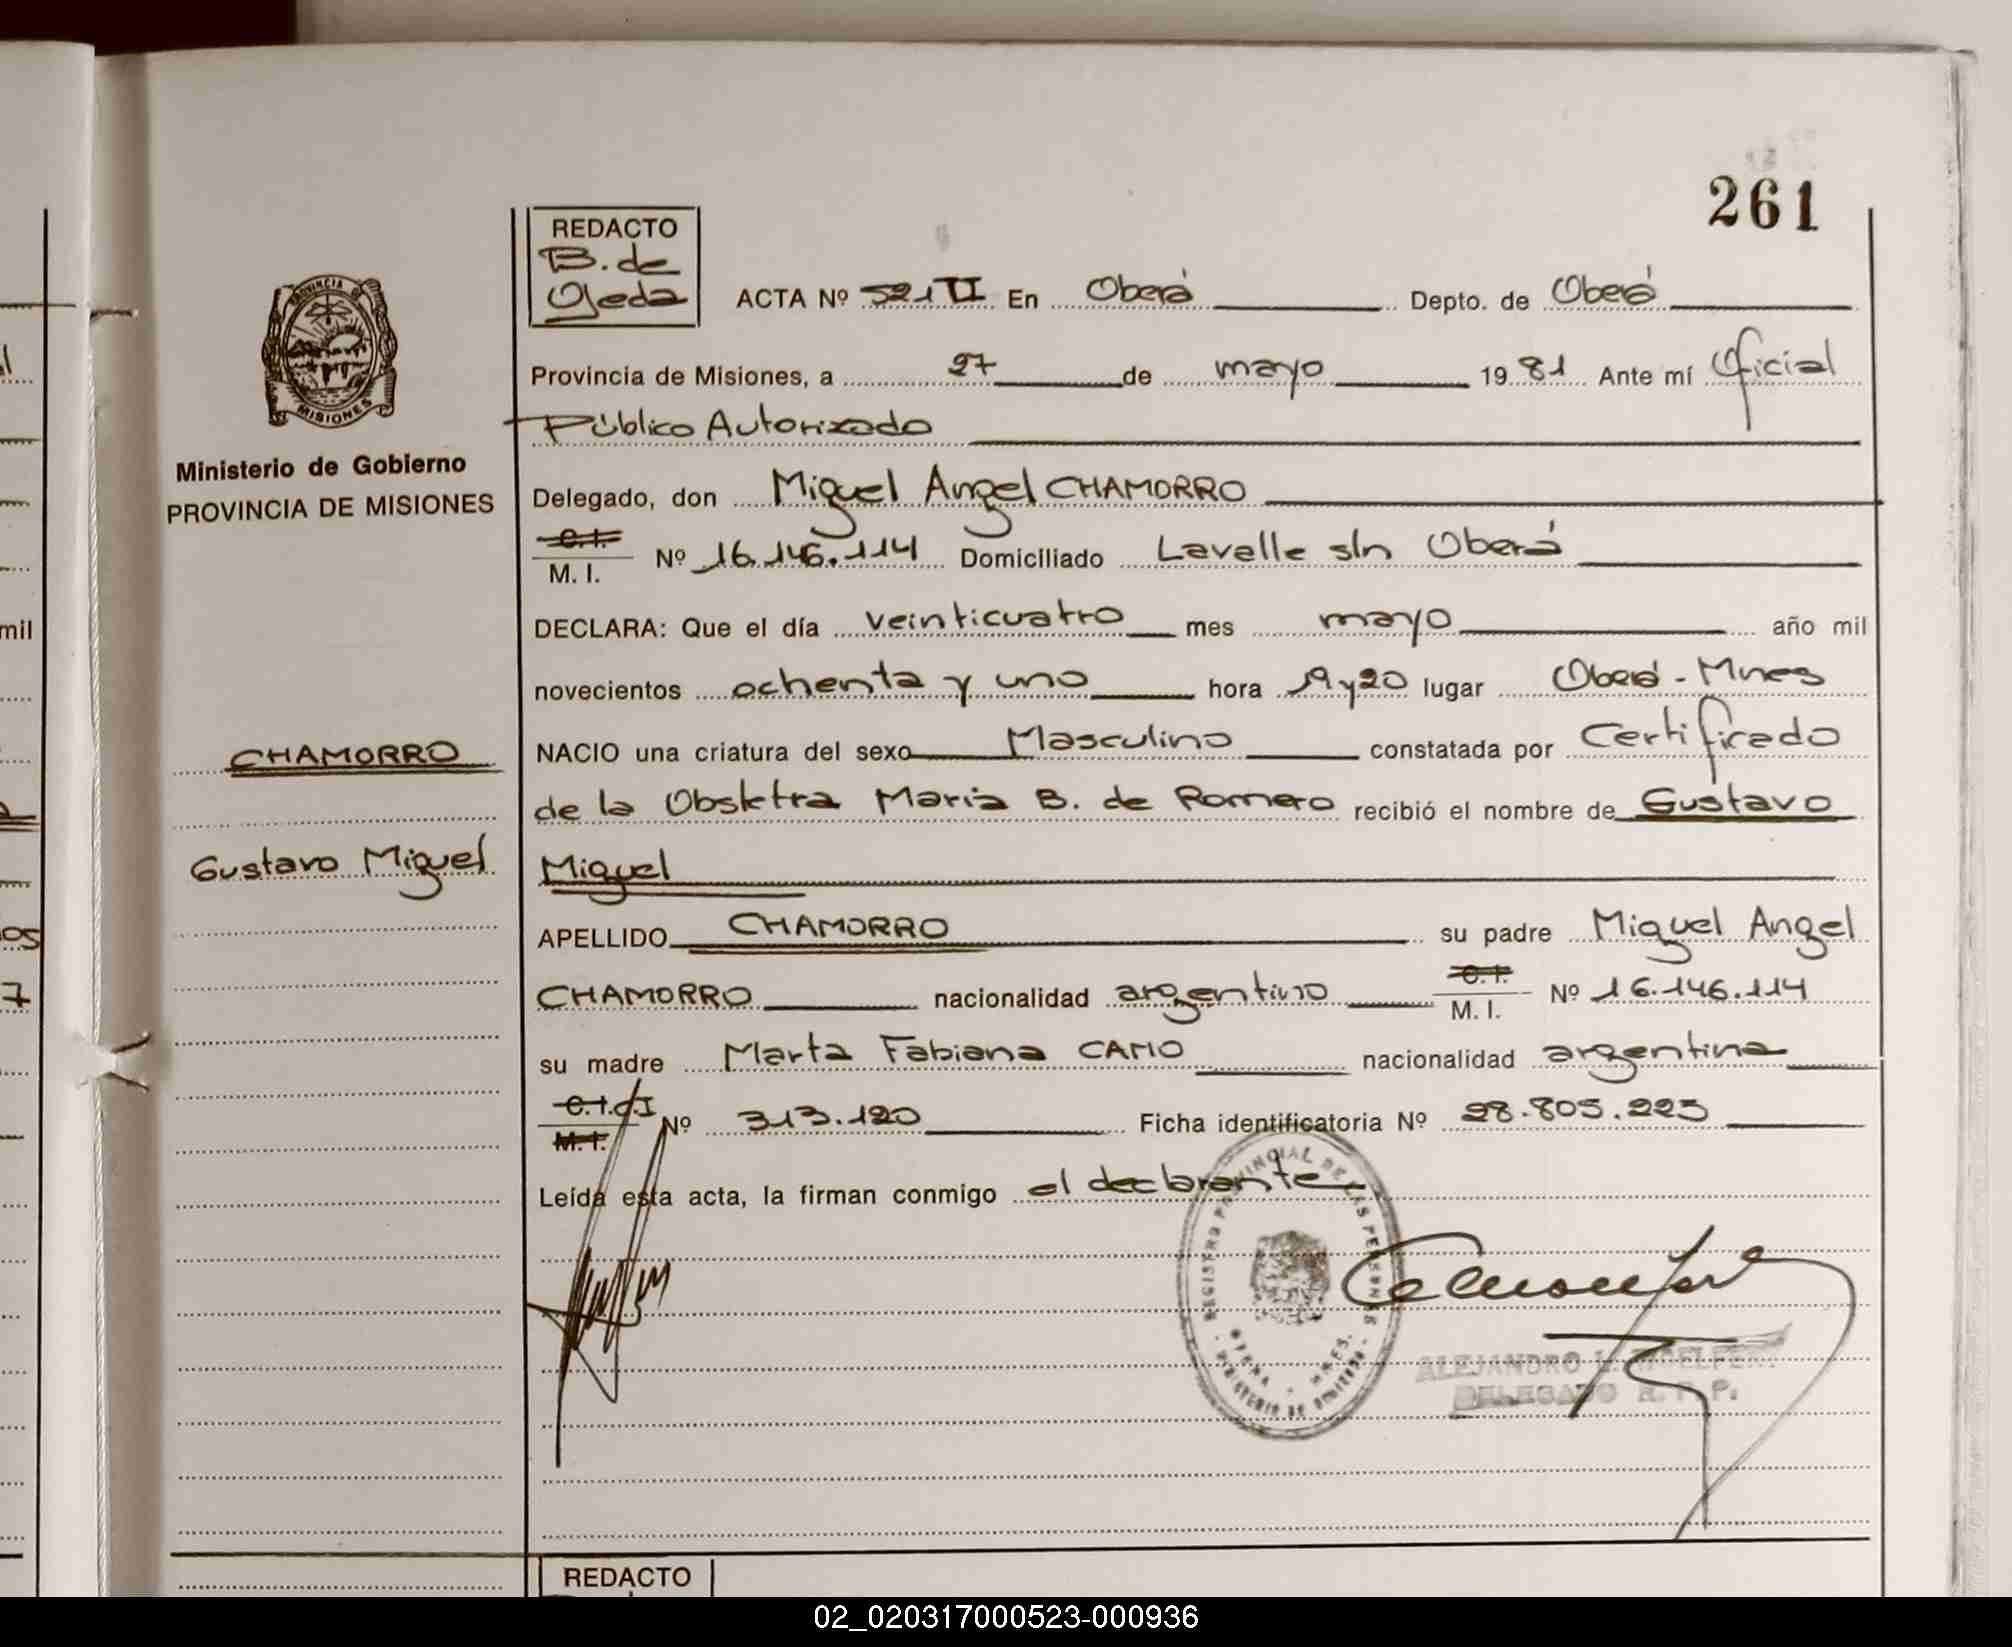 261
REDACTO
B. de
Ojeda
ACTA Nº 521 II En Oberá Depto. de Oberá
Provincia de Misiones, a 27 de mayo 1981 Ante mí Oficial
Público Autorizado
PROVINCIA DE
MISIONES
Ministerio de Gobierno
PROVINCIA DE MISIONES
Delegado, don Miguel Angel CHAMORRO
C.I.
M. I. Nº 16.146.114 Domiciliado Lavalle s/n Oberá
DECLARA: Que el día veinticuatro mes mayo año mil
novecientos ochenta y uno hora 19 y 20 lugar Oberá - Mnes
CHAMORRO
NACIO una criatura del sexo Masculino constatada por Certificado
de la Obstetra Maria B. de Romero recibió el nombre de Gustavo
Gustavo Miguel
Miguel
APELLIDO CHAMORRO su padre Miguel Angel
CHAMORRO nacionalidad argentino C.I. M. I. Nº 16.146.114
su madre Marta Fabiana CAMO nacionalidad argentina
C.I. C.I M.I. Nº 313.120 Ficha identificatoria Nº 28.805.223
Leída esta acta, la firman conmigo el declarante
REGISTRO PROVINCIAL DE LAS PERSONAS
ALEJANDRO
DELEGADO R. P. P.
REDACTO
mil
os
7
02_020317000523-000936